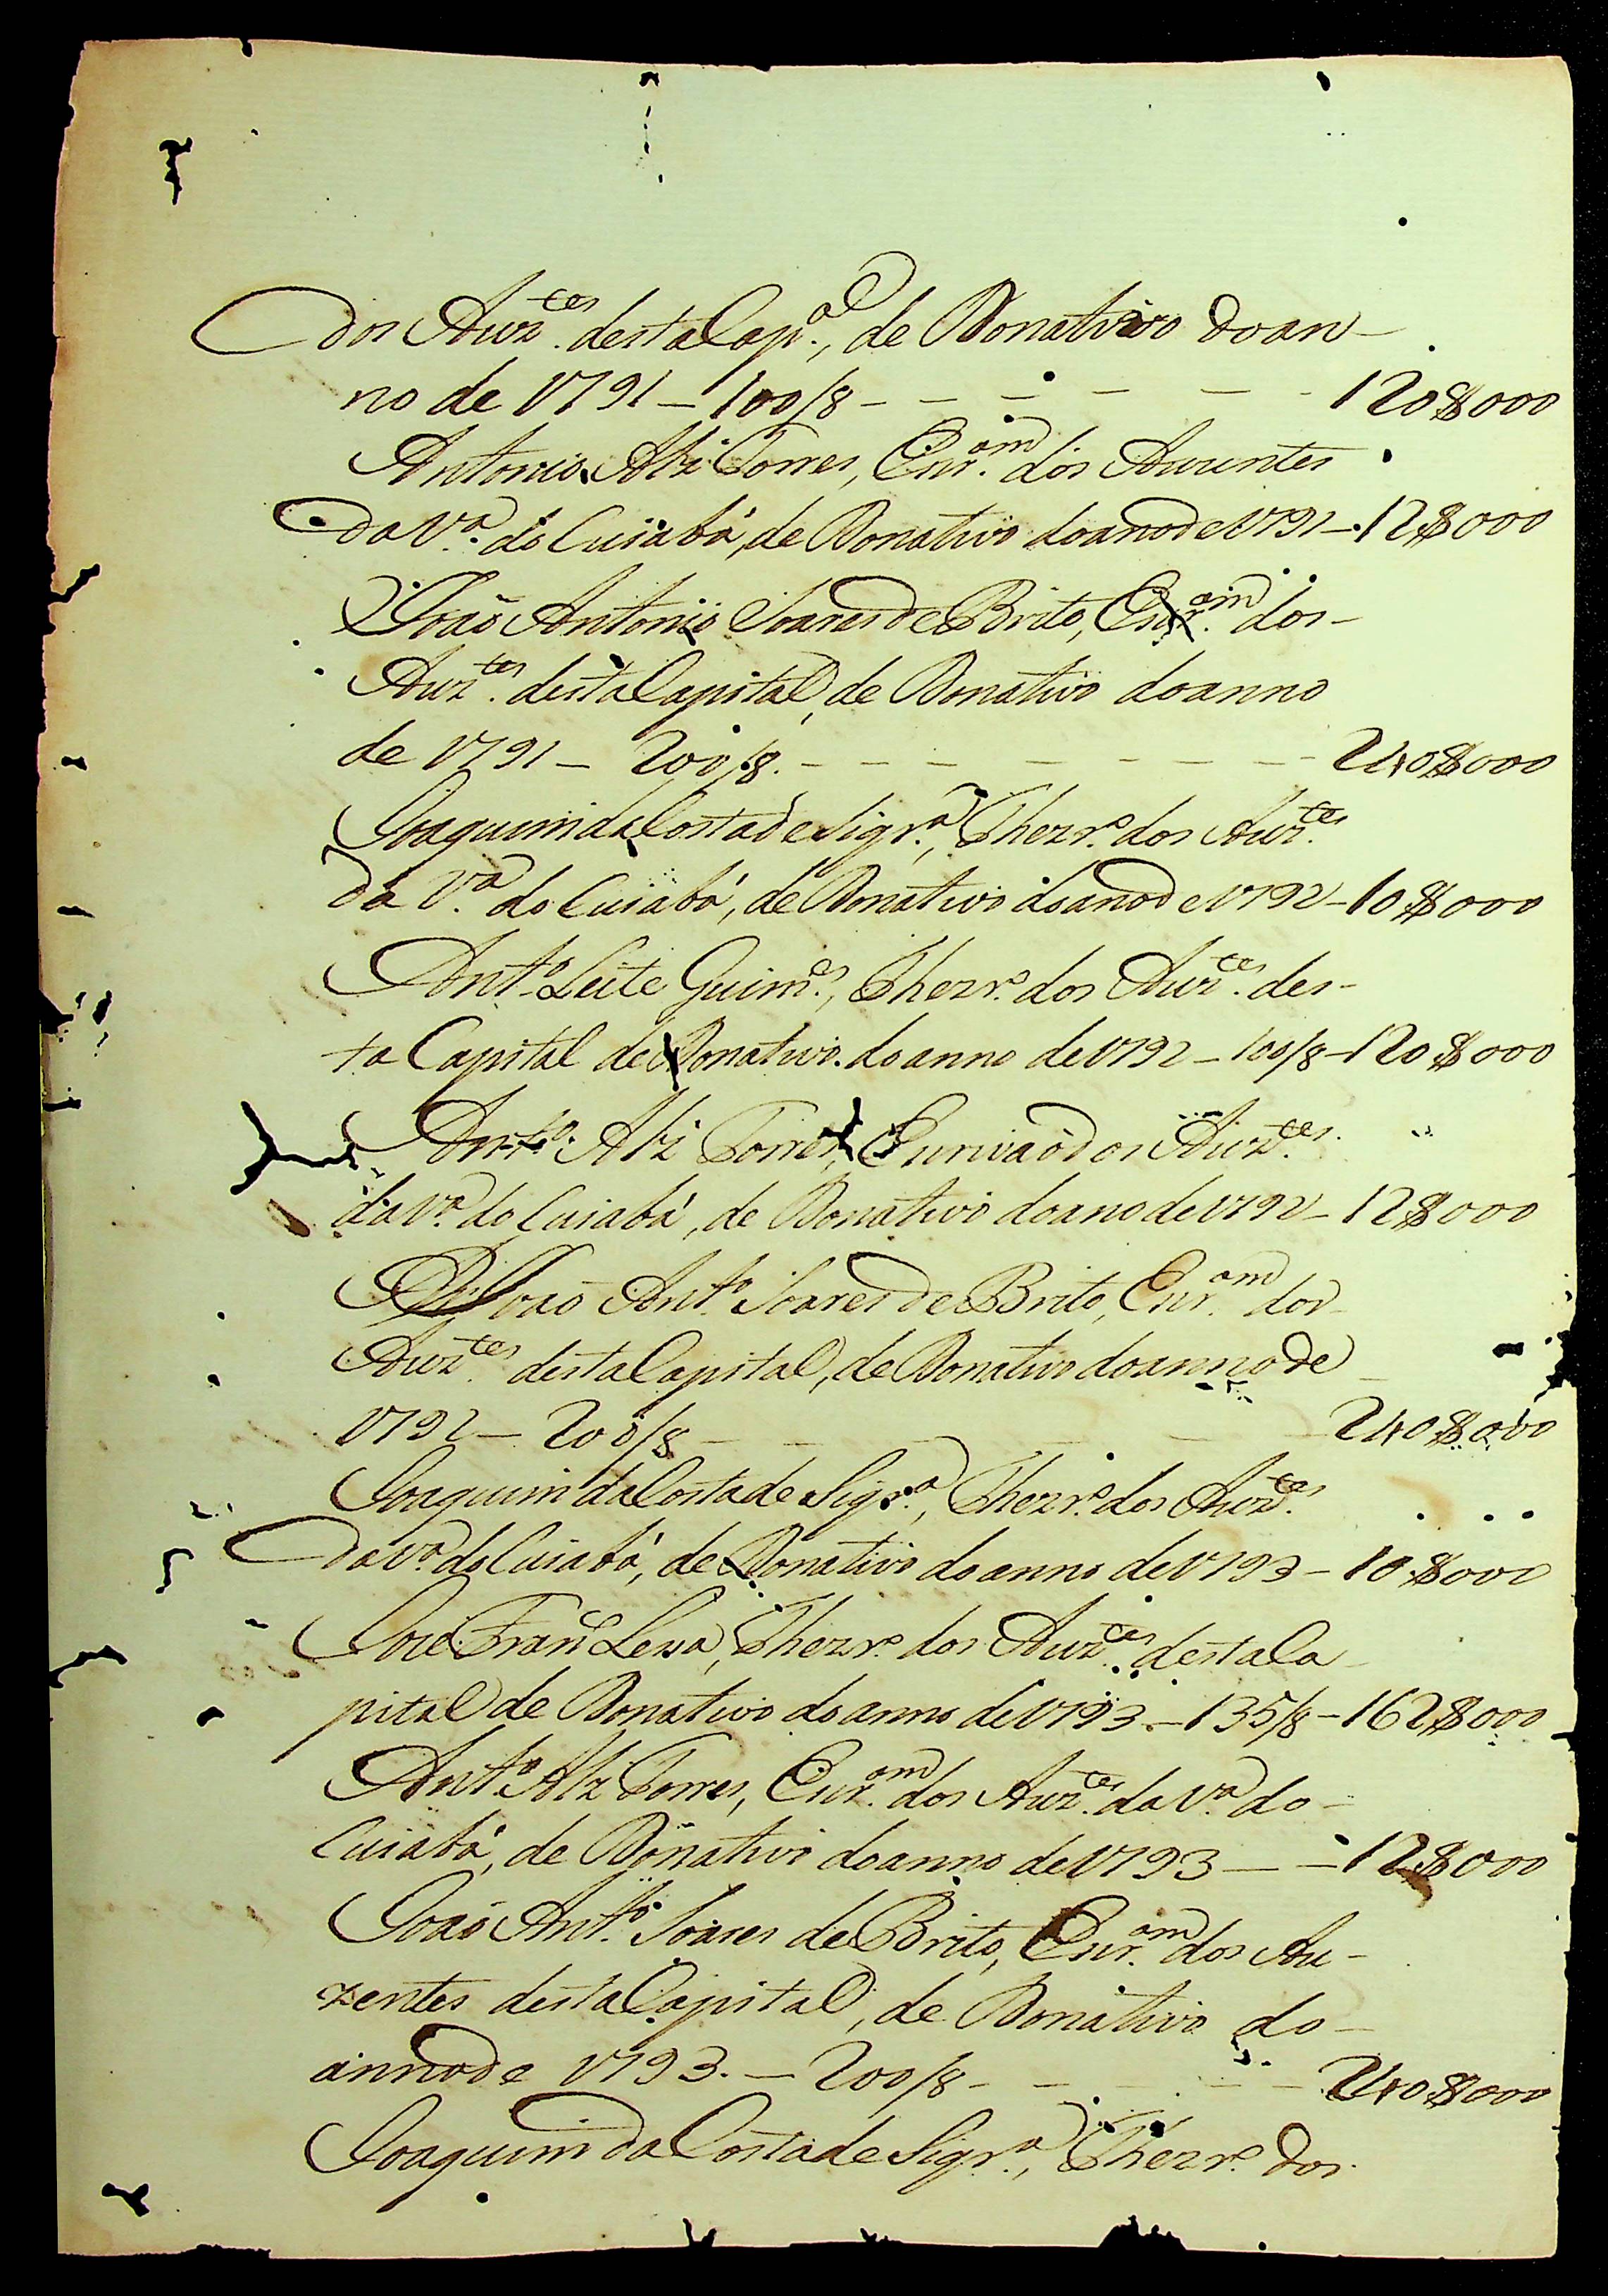 dos Auz.tes desta Cap.al, de Donativo do an-
no de 1791 - 100/8 - - - - - - 120$000
Antonio Alz Torres, Escr.am dos Auzentes
da V.a do Cuiabá, de Donativo do ano de 1791 - 12$000
João Antonio Soares de Brito, Escr.am dos -
Auz.tes desta Capital, de Donativo do anno
de 1791 - 200/8. - - - - - - - - 240$000
Joaquim da Costa de Siqr.a, Thezr.o dos Auz.tes
da V.a do Cuiabá, de Donativo do ano de 1792 - 10$000
Ant.o Leite Guim.es, Thezr.o dos Auz.tes des-
ta Capital de Donativo do anno de 1792 - 100/8 - 120$000
Ant.o Alz Torres, Escrivaõ dos Auz.tes
da V.a do Cuiabá, de Donativo do ano de 1792 - 12$000
João Ant.o Soares de Brito, Escr.am dos
Auz.tes desta Capital, de Donativo do anno de
1792 - 200/8 - - - - - 240$000
Joaquim da Costa de Siqr.a, Thezr.o dos Auz.tes
da V.a do Cuiabá, de Donativo do anno de 1793 - 10$000
José Fran.co Lessa, Thezr.o dos Auz.tes desta Ca
pital de Donativo do anno de 1793 - 135/8 - 162$000
Ant.o Alz Torres, Escr.am dos Auz.tes da V.a do -
Cuiabá, de Donativo do anno de 1793 - - 12$000
João Ant.o Soares de Brito, Escr.am dos Au-
zentes desta Capital, de Donativo do -
anno de 1793. - 200/8 - - - - - 240$000
Joaquim da Costa de Siqr.a, Thezr.o dos